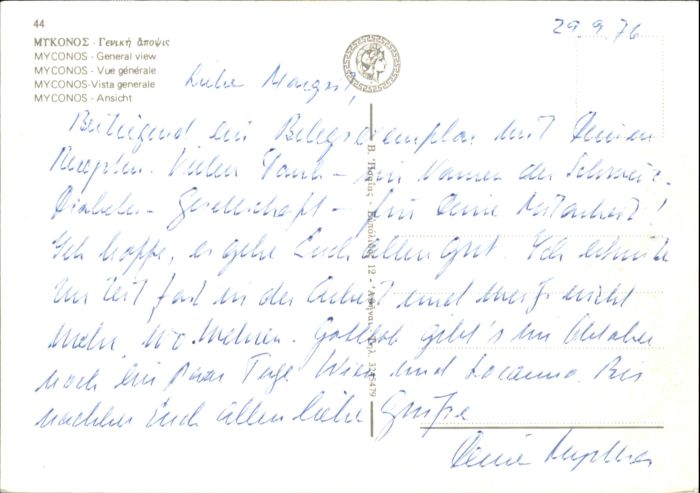 44
29.9.76
ΜΥΚΟΝΟΣ - Γενική ἄποψις
MYCONOS - General view
MYCONOS - Vue générale
MYCONOS-Vista generale
MYCONOS - Ansicht
Liebe Margrit!
Beiliegend ein Belegsexemplar mit Deinen
Rezepten. Vielen Dank - im Namen der Schweiz.
Diabetes-Gesellschaft - für Deine Mitarbeit!
Ich hoffe, es gehe Euch allen gut. Ich
zur Zeit fast in der Arbeit und weiss nicht
mehr, wo wehren. Gottlob gibt's im Oktober
noch ein paar Tage Wien und Locarno. Bis
nachher Euch allen liebe Grüsse
Deine
12 - Ἀθῆναι Τηλ.